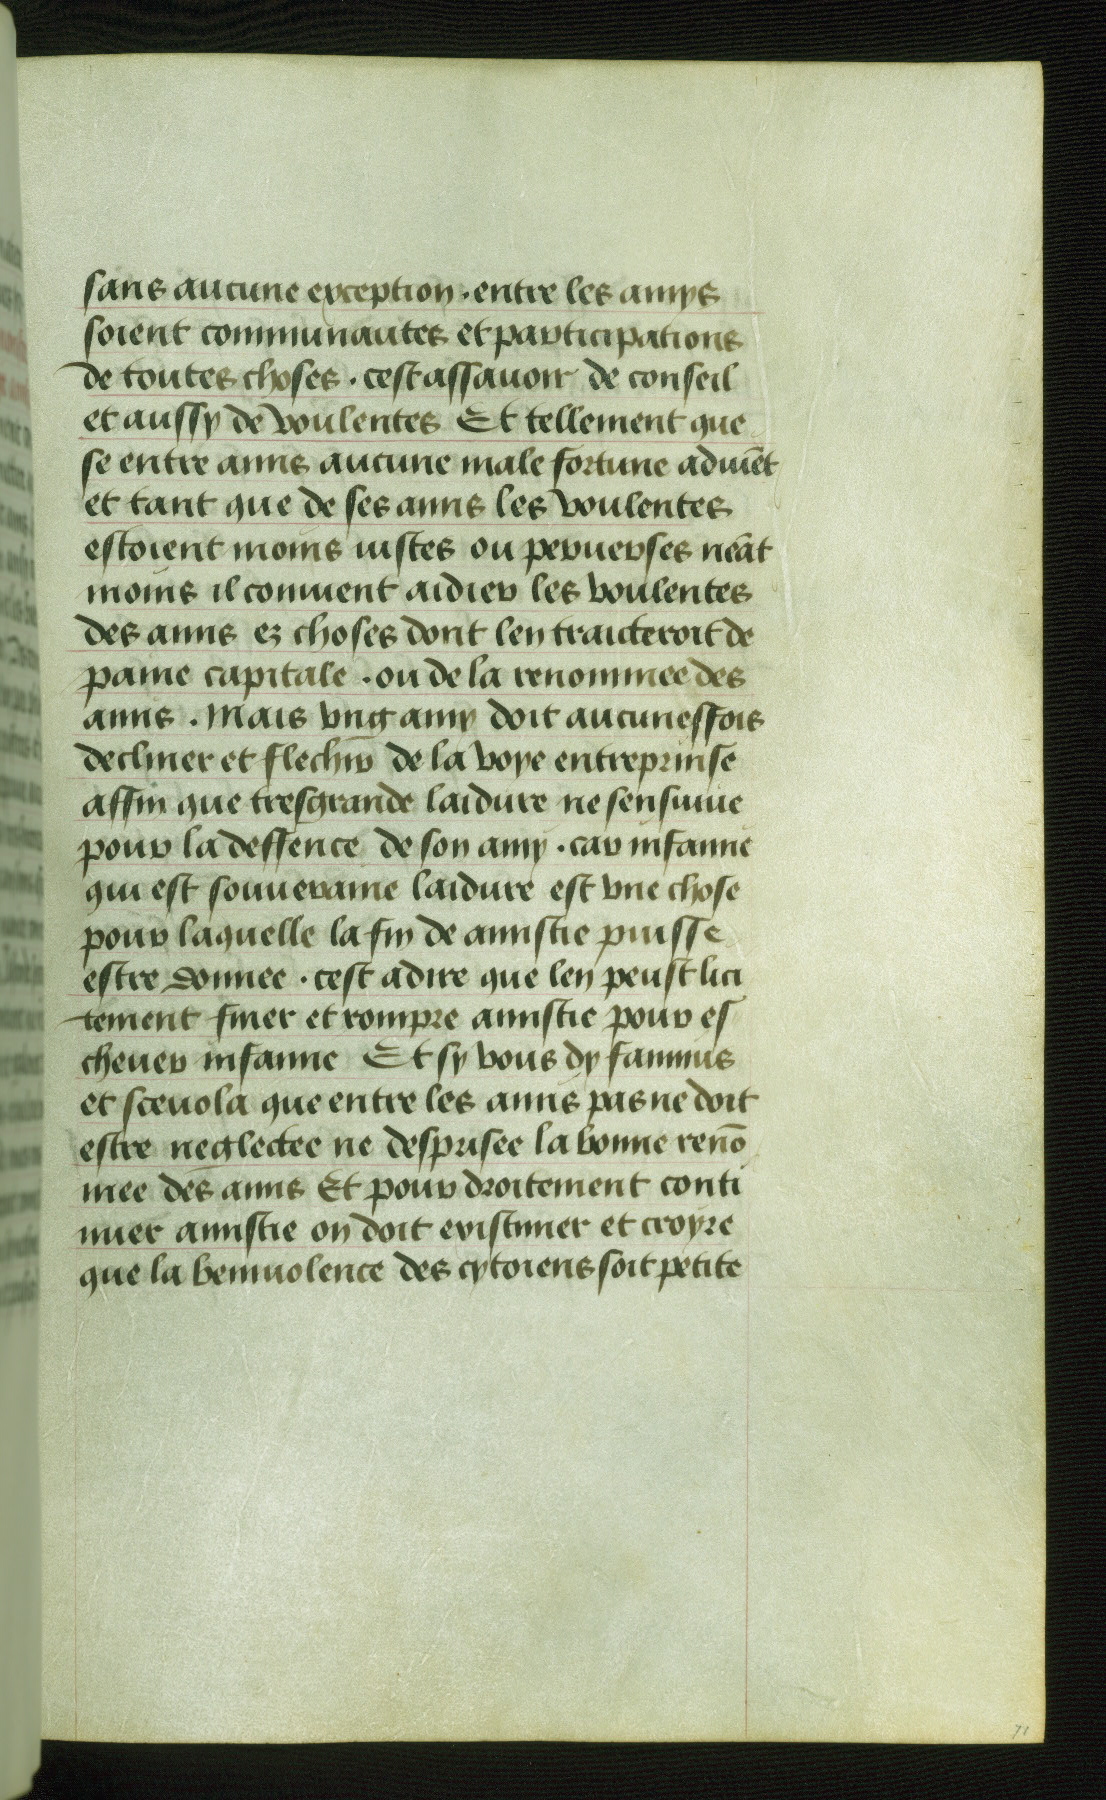 sans aucune exception · entre les amys
soient communautes et participations
de toutes choses · cest assavoir de conseil
et aussy de voulentes Et tellement que
se entre amis aucune male fortune aduiēt
et tant que de ses amis les voulentes
estoient moins iustes ou peruerses neāt
moins il conuient aidier les voulentes
des amis ez choses dont len traicteroit de
paine capitale · ou de la renommee des
amis · Mais vng amy doit aucuneffois
decliner et flechir de la voye entreprinse
affin que tresgrande laidure ne sensuiue
pour la deffence de son amy · car infamie
qui est souueraine laidure est vne chose
pour laquelle la fin de amistie puisse
estre donnee · cest adire que len peust lici
tement finer et rompre amistie pour es
cheuer infamie Et sy vous dy fannius
et sceuola que entre les amis pas ne doit
estre neglectee ne desprisee la bonne renō
mee des amis Et pour droitement conti
nuer amistie on doit existimer et croyre
que la beniuolence des cytoiens soit petite
71